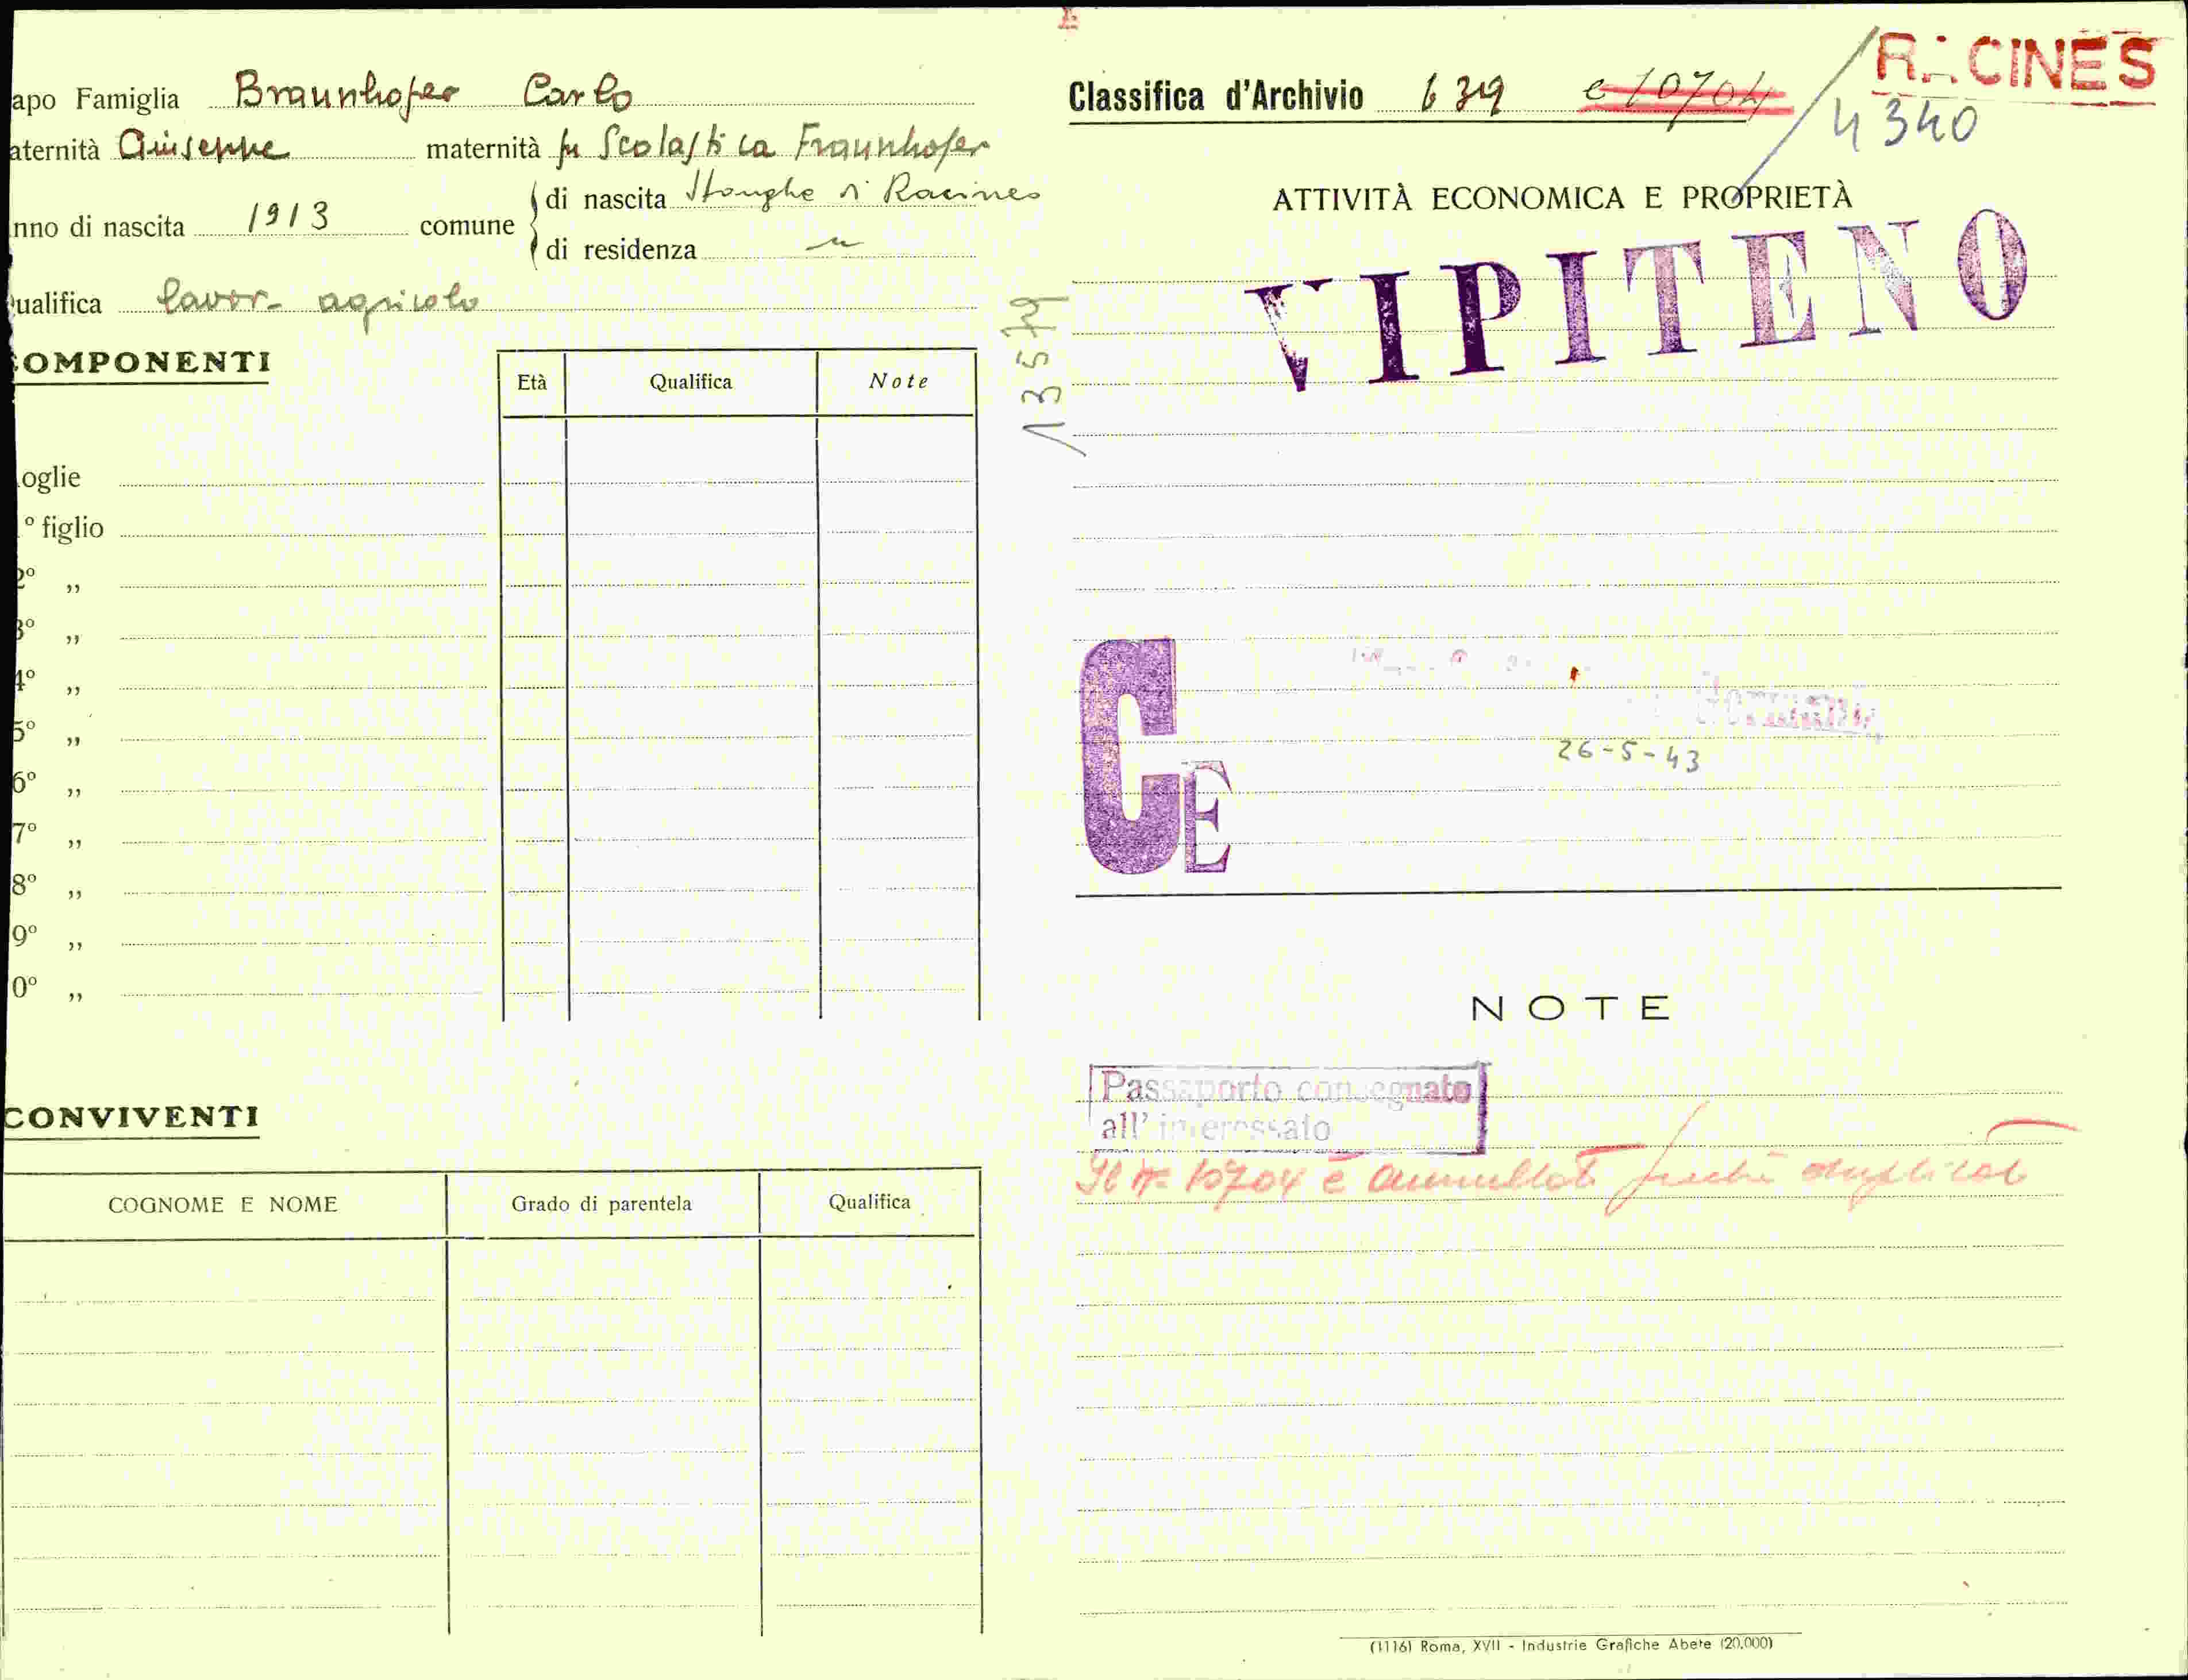 apo Famiglia Braunhofer Carlo
aternità Giuseppe maternità fu Scolastica Fraunhofer
nno di nascita 1913 comune di nascita Stanghe di Racines
di residenza "
ualifica lavor. agricolo
COMPONENTI
Età Qualifica Note
oglie
° figlio
2° „
3° „
4° „
5° „
6° „
7° „
8° „
9° „
0° „
CONVIVENTI
COGNOME E NOME Grado di parentela Qualifica
13579
Classifica d'Archivio 6319 e 10704 / RACINES
4340
ATTIVITÀ ECONOMICA E PROPRIETÀ
VIPITENO
26-5-43
CE
NOTE
Passaporto consegnato
all'interessato
Il n° 10704 è annullato perché duplicato
(1116) Roma, XVII - Industrie Grafiche Abete (20.000)